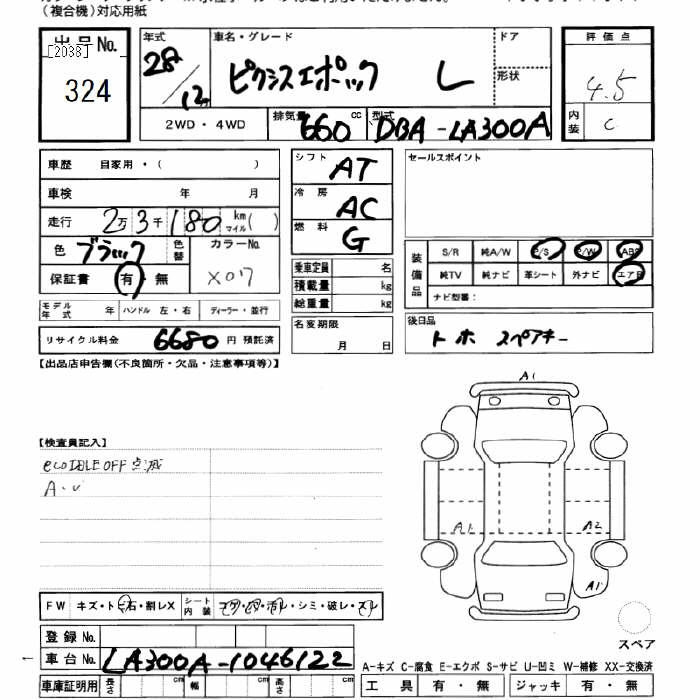 (複合機)対応用紙
出品No. [2038]
324
年式 28/12
車名・グレード ピクシスエポック L
ドア
形状
評価点 4.5
内装 C
2WD・4WD
排気量 660 cc
型式 DBA-LA300A
車歴 自家用・( )
車検 年 月
走行 2万3千180 km マイル( )
色 ブラック 色替
カラーNo. X07
保証書 有・無
シフト AT
冷房 AC
燃料 G
乗車定員 名
積載量 kg
総重量 kg
セールスポイント
装備品 S/R 純A/W P/S P/W ABS
純TV 純ナビ 革シート 外ナビ エアB
ナビ型番:
モデル年式 年 ハンドル 左・右 ディーラー・並行
リサイクル料金 6680 円 預託済
名変期限 月 日
後日品
トホ スペアキー
【出品店申告欄(不良箇所・欠品・注意事項等)】
A1
【検査員記入】
ecoIDLE OFF 点滅
A・U
A1 A2
A1
FW キズ・トビ石・割レX シート内装 コゲ・穴・汚レ・シミ・破レ・スレ
スペア
登録No.
車台No. LA300A-1046122
A-キズ C-腐食 E-エクボ S-サビ U-凹ミ W-補修 XX-交換済
車庫証明用 長さ cm 幅 cm 高さ cm
工具 有・無 ジャッキ 有・無